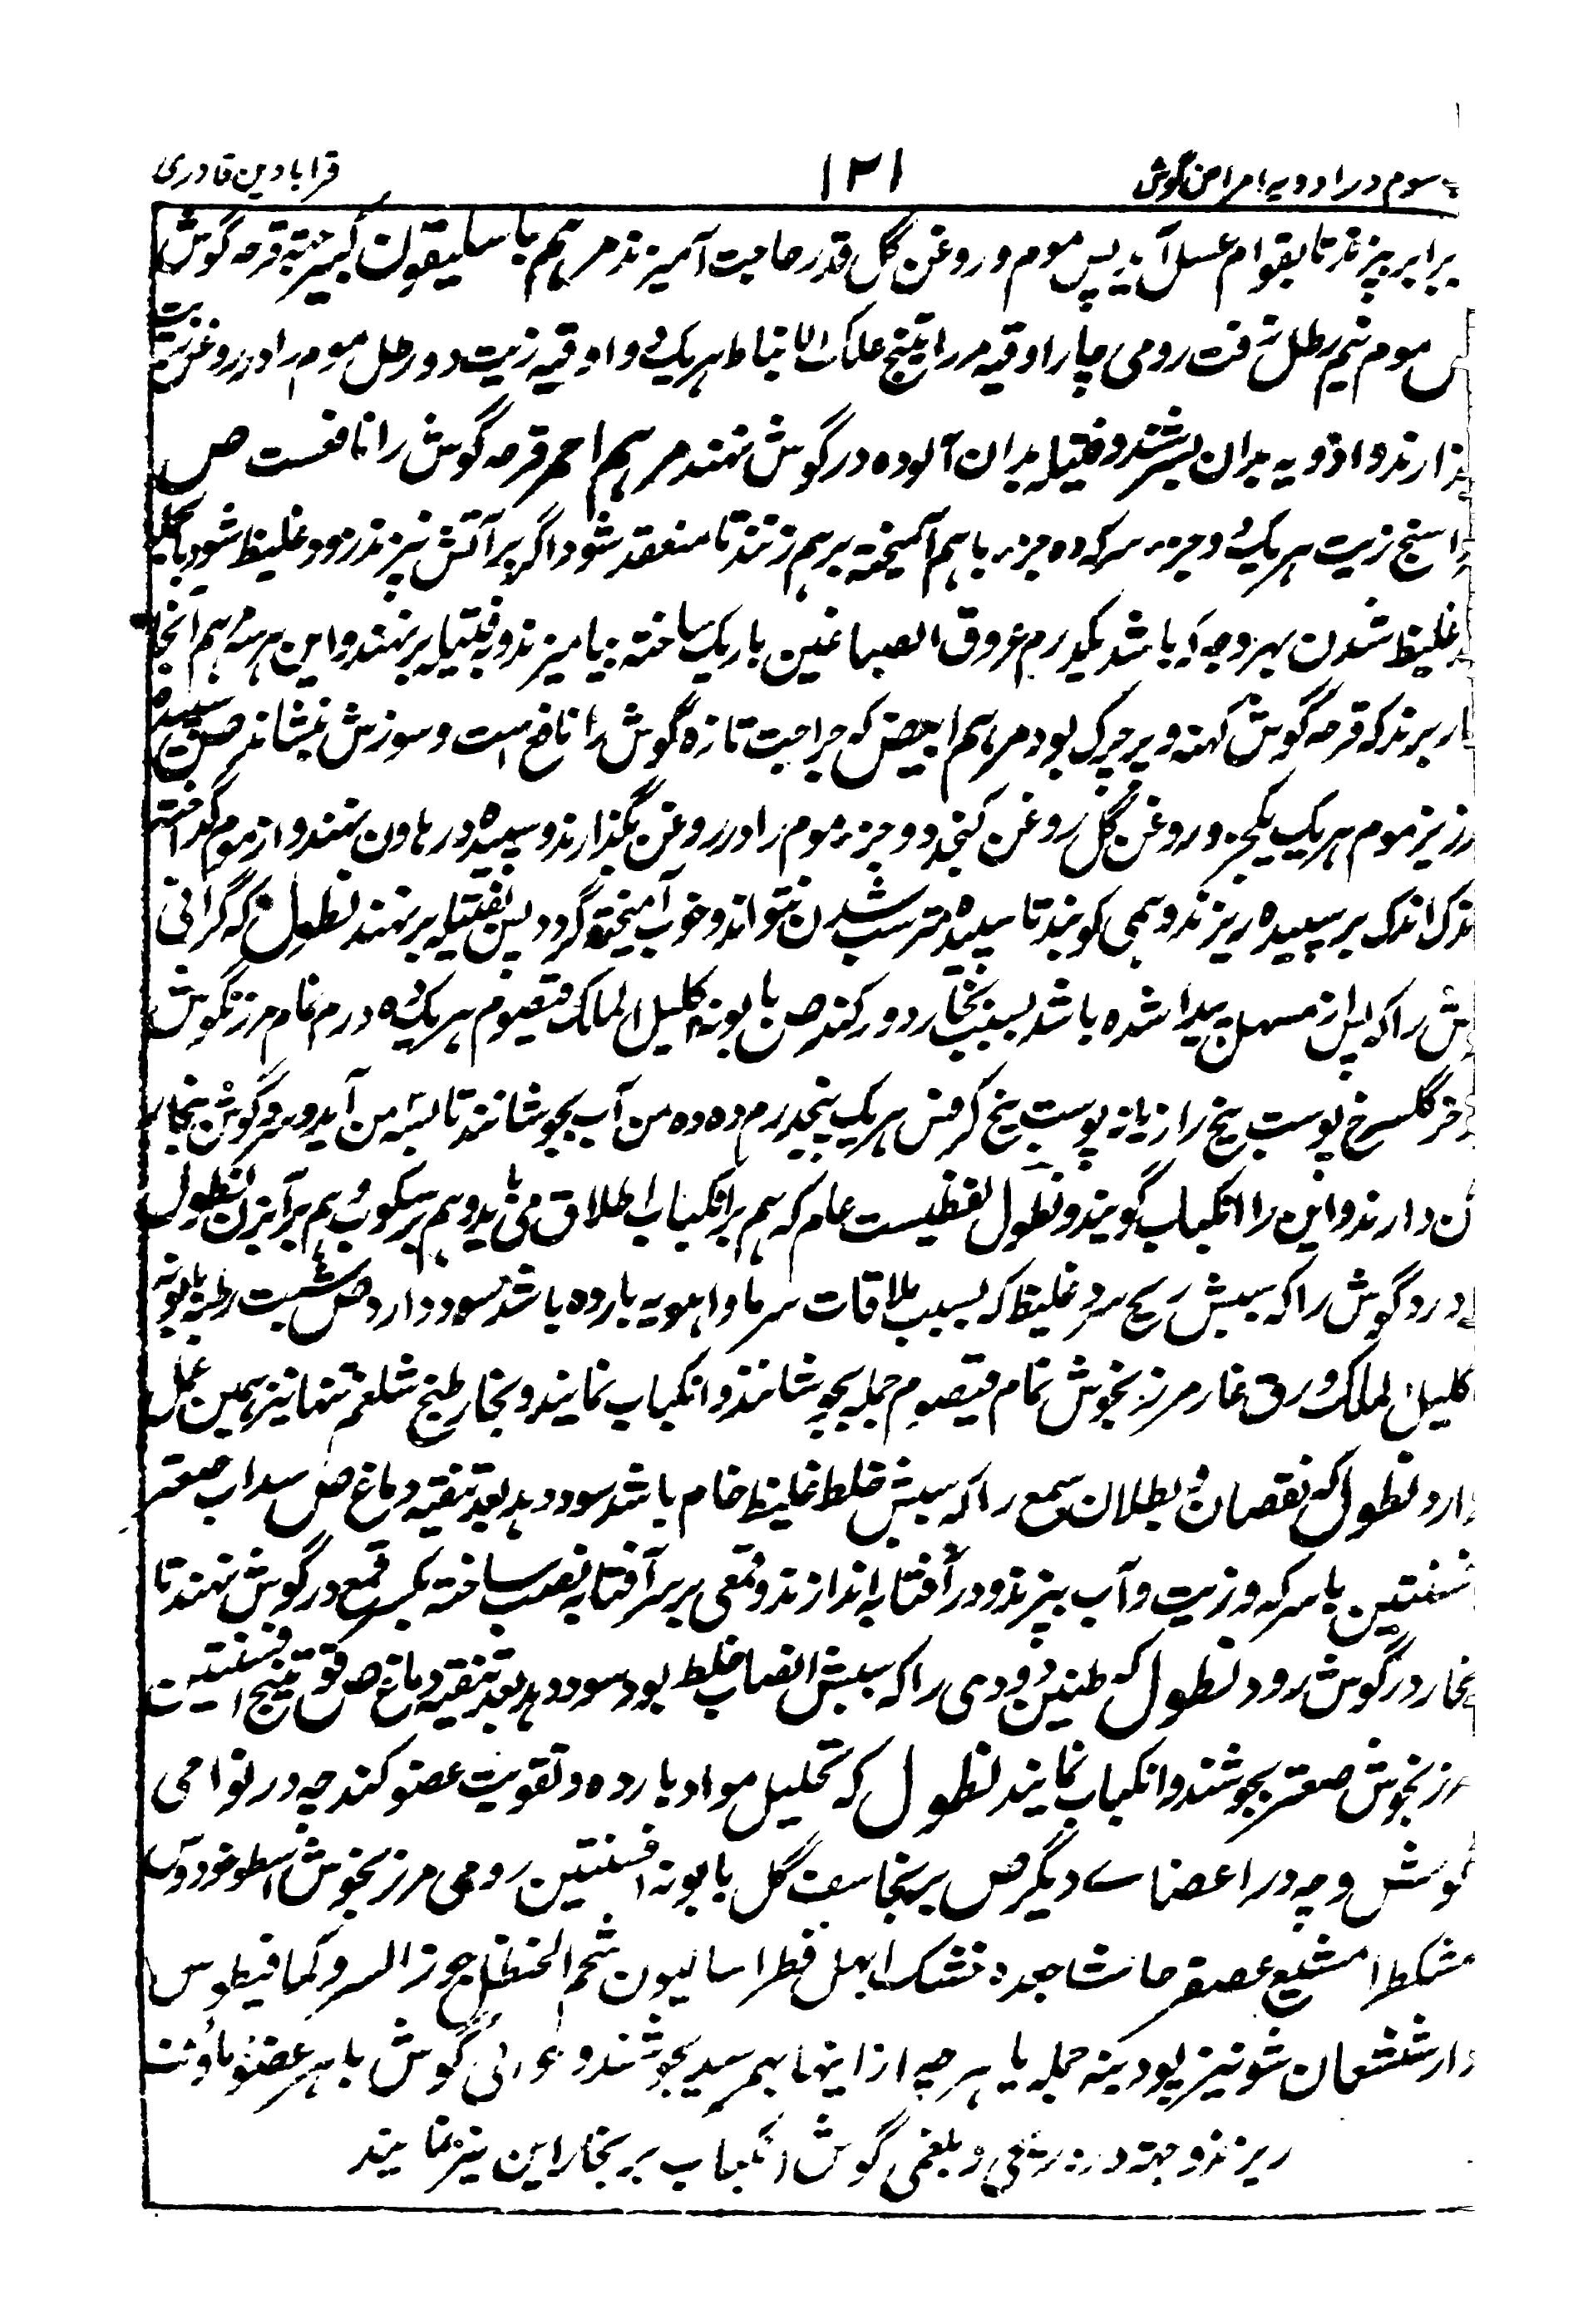 سوم در ادویه امراض گوش ۱۲۱ قرابادین قادری
برابر پزند تا بقوام عسل آید پس موم و روغن گل قدر حاجت آمیزند مرهم باسلیقون کبیر جهة قرحه گوش
موم نیم رطل زفت رومی چار اوقیه مر راتینج علک الانباط هریک دو اوقیه زیت دو رطل موم را در روغن زیت
گذارند و ادویه بدان بسرشند و فتیله بدان آلوده در گوش نهند مرهم احمر قرحه گوش را نافعست ص
زیت هریک دو جزء سرکه ده جزء باهم آمیخته برهم زنند تا منعقد شود اگر بر آتش نیز پزند زود غلیظ شود بالجمله
غلیظ شدن بهر وجه که باشد یکدرم عروق الصباغین باریک ساخته بیامیزند و بفتیله بر نهند و این مرهم هم آنجا
کار برند که قرحه گوش کهنه و پر چرک بود مرهم ابیض که جراحت تازه گوش را نافع است و سوزش نشاند ص سپیده
ارزیز موم هریک یکجزء روغن گل روغن کنجد دو جزء موم را در روغن بگذارند و سپیده در هاون نهند و از موم گداخته
اندک اندک بر سپیده ریزند و همی کوبند تا سپیده مترسب شدن نتواند و خوب آمیخته گردد پس بفتیله بر نهند نطول که گرانی
گوش را که پس از مسهل پیدا شده باشد بسبب بخار دور کند ص بابونه اکلیل الملک قیصوم هریک ده درم نمام مرزنگوش
گلسرخ پوست بیخ رازیانه پوست بیخ کرفس هریک پنجدرم در ده من آب بجوشانند تا بسه من آید و سر و گوش ببخار
آن دارند و این را انکباب گویند و نطول لفظیست عام که هم بر انکباب اطلاق می یابد و هم بر سکوب و هم بر آبزن نطول
درد گوش را که سببش ریح سرد غلیظ که بسبب ملاقات سرما و اهویه بارده باشد سود دارد ص شبت رطبه بابونه
اکلیل الملک ورق غار مرزنجوش نمام قیصوم جمله بجوشانند و انکباب نمایند و بخار طبخ شلغم تنها نیز همین عمل
دارد نطول که نقصان و بطلان سمع را که سببش خلط غلیظ خام باشد سود دهد بعد تنقیه دماغ ص سداب صعتر
افسنتین با سرکه و زیت و آب بپزند و در آفتابه اندازند و قمعی بر سر آفتابه نصب ساخته یکسر قمع در گوش نهند تا
بخار در گوش رود نطول که طنین و دوی را که سببش انصباب خلط بود سود دهد بعد تنقیه دماغ ص افسنتین
مرزنجوش صعتر بجوشند و انکباب نمایند نطول که تحلیل مواد بارده و تقویت عضو کند چه در نواحی
گوش و چه در اعضاے دیگر ص برنجاسف گل بابونه افسنتین رومی مرزنجوش اسطوخودوس
مشکطرامشیع صعتر حاشا جعده خشک ابهل فطراسالیون شحم الحنظل جوز السرو کمافیطوس
دارششعان شونیز پودینه جمله یا هر چه از اینها بهم رسد بجوشند و حوالی گوش یا هر عضو ماؤف
ریزند و جهة درد ریحی و بلغمی گوش انکباب بر بخار این نیز نمایند